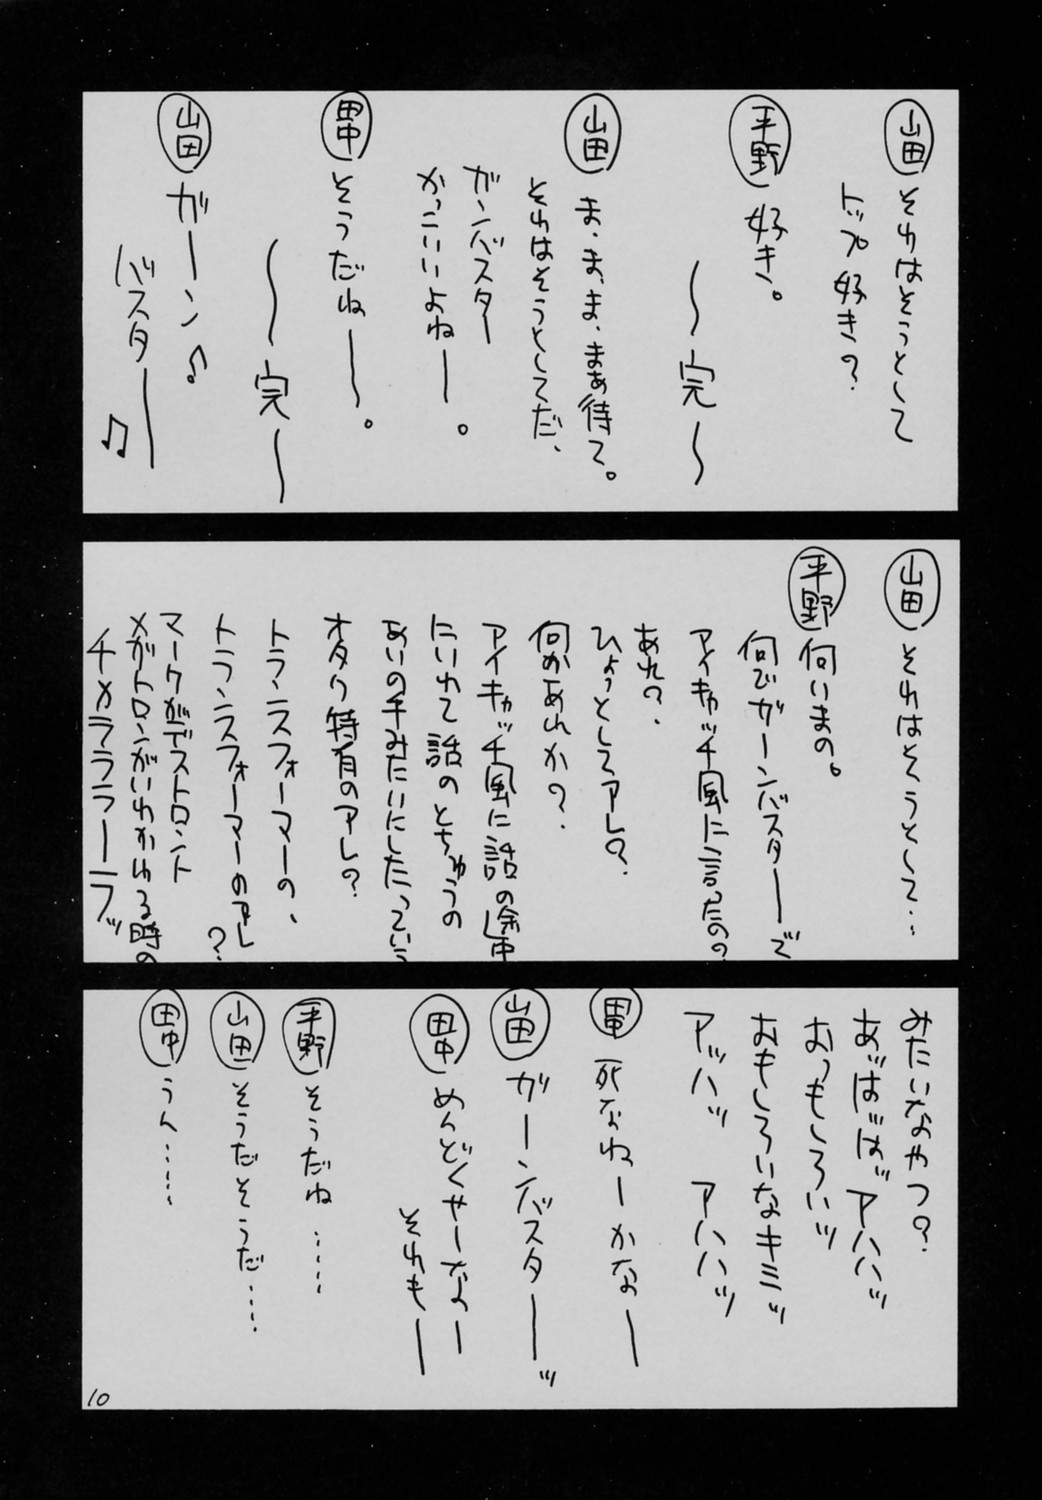 山田 それはそうとして
トップ好き？
平野 好き。
〜完〜
山田 ま、ま、ま、まあ待て。
それはそうとしてだ、
ガンバスター
かっこいいよねー。
田中 そうだねー。
〜完〜
山田 ガーン♪
バスター♫
山田 それはそうとして…
平野 何いまの。
何でガーンバスターーで
アイキャッチ風に言ったの？
あれ？
ひょっとしてアレ？
何かあれか？
アイキャッチ風に話の途中
にいれて話のとちゅうの
あいの手みたいにしたっていう
オタク特有のアレ？
トランスフォーマーの、
トランスフォーマーのアレ？
マークがデストロント
メガトロンがいわかれる時の
チメララララーラッ
みたいなやつ？
あッはッはッアハハッ
おっもしろいッ
おもしろいなキミッ
アッハッ アハハッ
田中 死なねーかなー
山田 ガーンバスターーッ
田中 めんどくやーなー
それもー
平野 そうだね……
山田 そうだそうだ……
田中 うん……
10